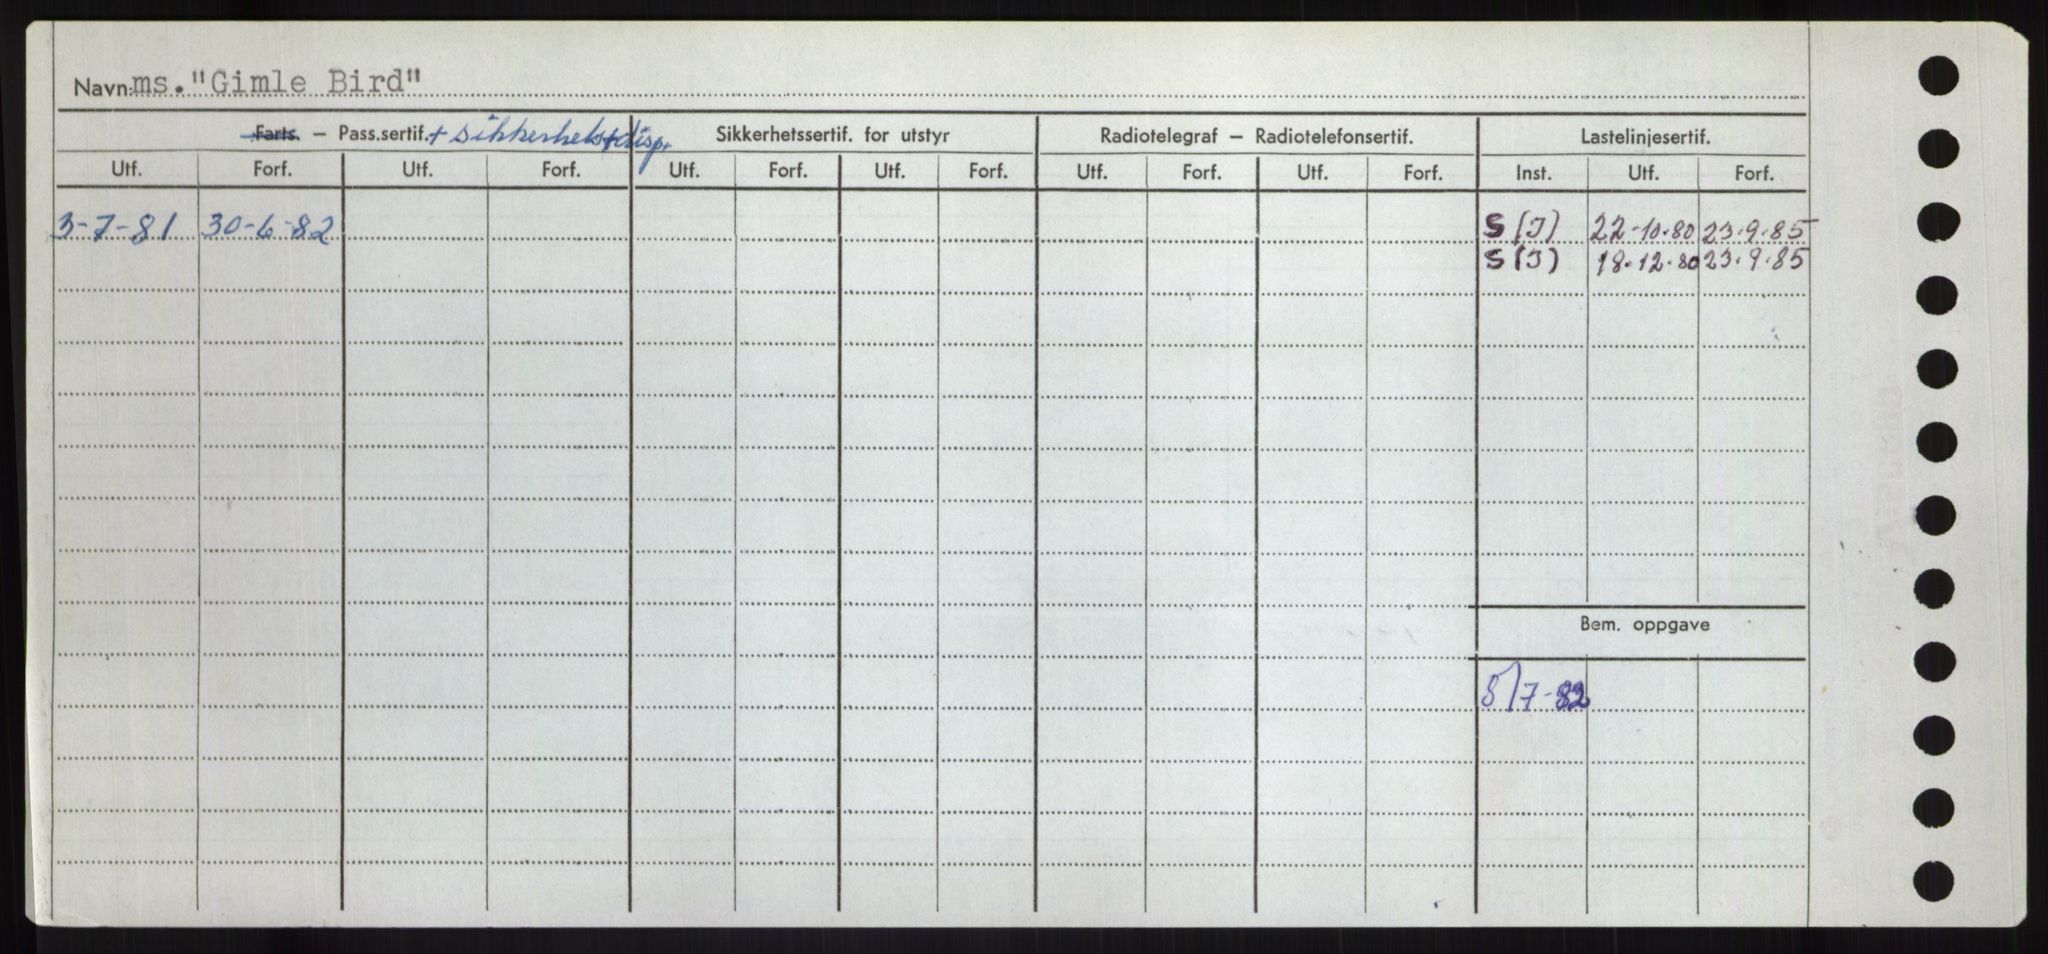 Navn: ms. "Gimle Bird"
Farts. – Pass.sertif. + sikkerhetsdisp. Sikkerhetssertif. for utstyr Radiotelegraf – Radiotelefonsertif. Lastelinjesertif.
Utf. Forf. Utf. Forf. Utf. Forf. Utf. Forf. Utf. Forf. Utf. Forf. Inst. Utf. Forf.
3-7-81 30-6-82 S (J) 22-10-80 23.9.85
S (J) 18-12-80 23.9.85
Bem. oppgave
8/7-82